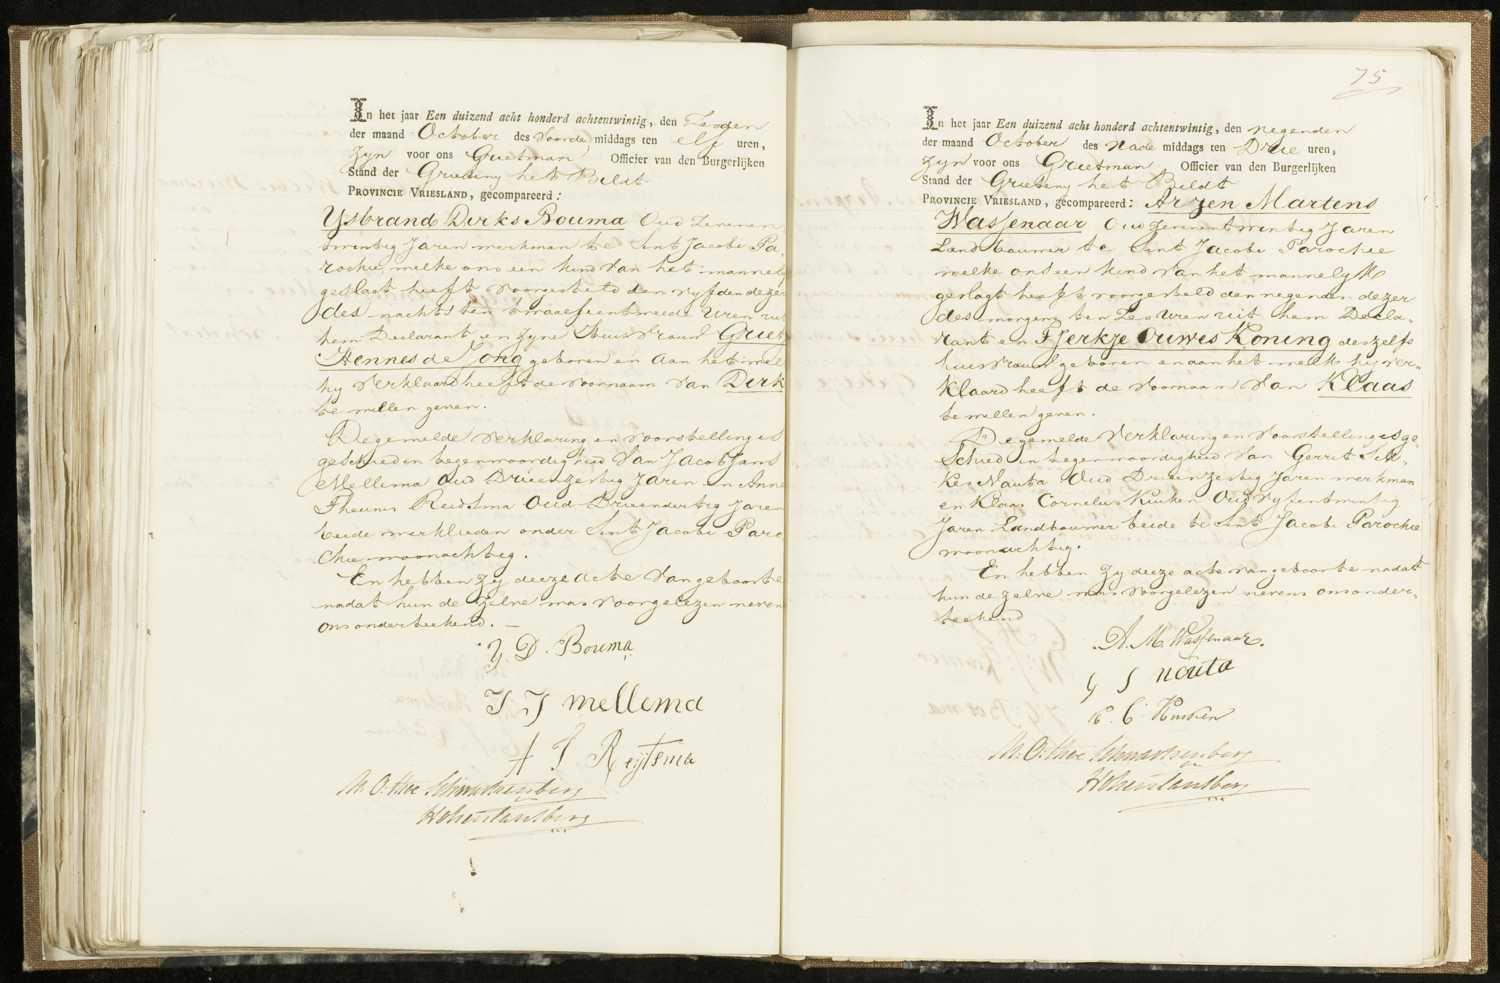 In het jaar Een duizend acht honderd achtentwintig, den Zesden
der maand October des Voorde middags ten elf uren,
zyn voor ons Grietman Officier van den Burgerlijken
Stand der Grieteny het Bildt
PROVINCIE VRIESLAND, gecompareerd:
Ysbrand Dirks Bouma Oud Zevenen
twintig Jaren werkman te Sint Jacobi Pa
rochie, welke ons een kind van het mannelyk
geslagt heeft voorgesteld den vyfden dezer
des nachts ten twaalf uren uit
hem Declarant en zyne Huisvrouw Griet
Hennes de Jong geboren en aan het wel
hy verklaard heeft de voornaam van Dirk
te willen geven.
De gemelde verklaring en voorstelling is
geschied in tegenwoordigheid van Jacob Jans
Mellema Oud Drieenzestig Jaren en Anne
Theunis Reidsma Oud Drieendertig Jaren
beide werklieden onder Sint Jacobi Paro
chie woonachtig.
En hebben zy deeze acte van geboorte
nadat hun de zelve was voorgelezen nevens
ons onderteekend.
Y D. Bouma
J J mellema
A T Reijtsma
75
In het jaar Een duizend acht honderd achtentwintig, den negenden
der maand October des Nade middags ten Drie uren,
zyn voor ons Grietman Officier van den Burgerlijken
Stand der Grieteny het Bildt
PROVINCIE VRIESLAND, gecompareerd: Arjen Martens
Wassenaar Oud Zevenentwintig Jaren
Landbouwer te Sint Jacobi Parochie
welke ons een kind van het mannelyk
geslagt heeft voorgesteld den negenden dezer
des morgens ten Zes uren uit hem Decla-
rant en Tjerkje Ouwes Koning deszelfs
huisvrouw geboren en aan het welk hy ver-
klaard heeft de voornaam van Klaas
te willen geven.
De gemelde verklaring en voorstelling is ge-
schied in tegenwoordigheid van Gerrit
Nauta Oud Drieenzestig Jaren werkman
en Klaas Cornelius Kuiken Oud Vyfentwintig
Jaren Landbouwer beide te Sint Jacobi Parochie
woonachtig.
En hebben zy deeze acte van geboorte nadat
hun de zelve was voorgelezen nevens ons onder-
teekend
A. M. Wassenaar.
G S nouta
K. C. Kuiken